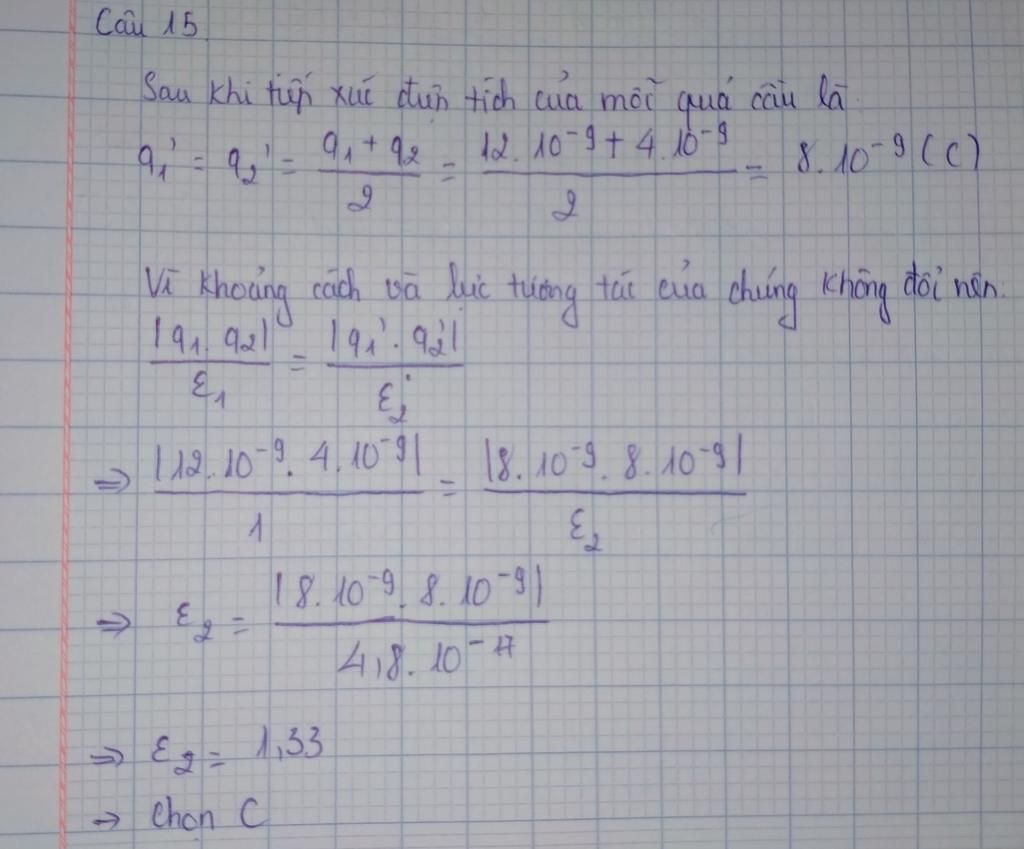 Câu 15
Sau khi tiếp xúc điện tích của mỗi quả cầu là
q₁' = q₂' = (q₁ + q₂)/2 = (12.10⁻⁹ + 4.10⁻⁹)/2 = 8.10⁻⁹ (C)
Vì khoảng cách và lực tương tác của chúng không đổi nên.
|q₁. q₂|/ε₁ = |q₁'. q₂'|/ε₂
⇒ |12.10⁻⁹. 4.10⁻⁹|/1 = |8.10⁻⁹. 8.10⁻⁹|/ε₂
⇒ ε₂ = |8.10⁻⁹. 8.10⁻⁹|/4,8.10⁻¹⁷
⇒ ε₂ = 1,33
→ Chọn C